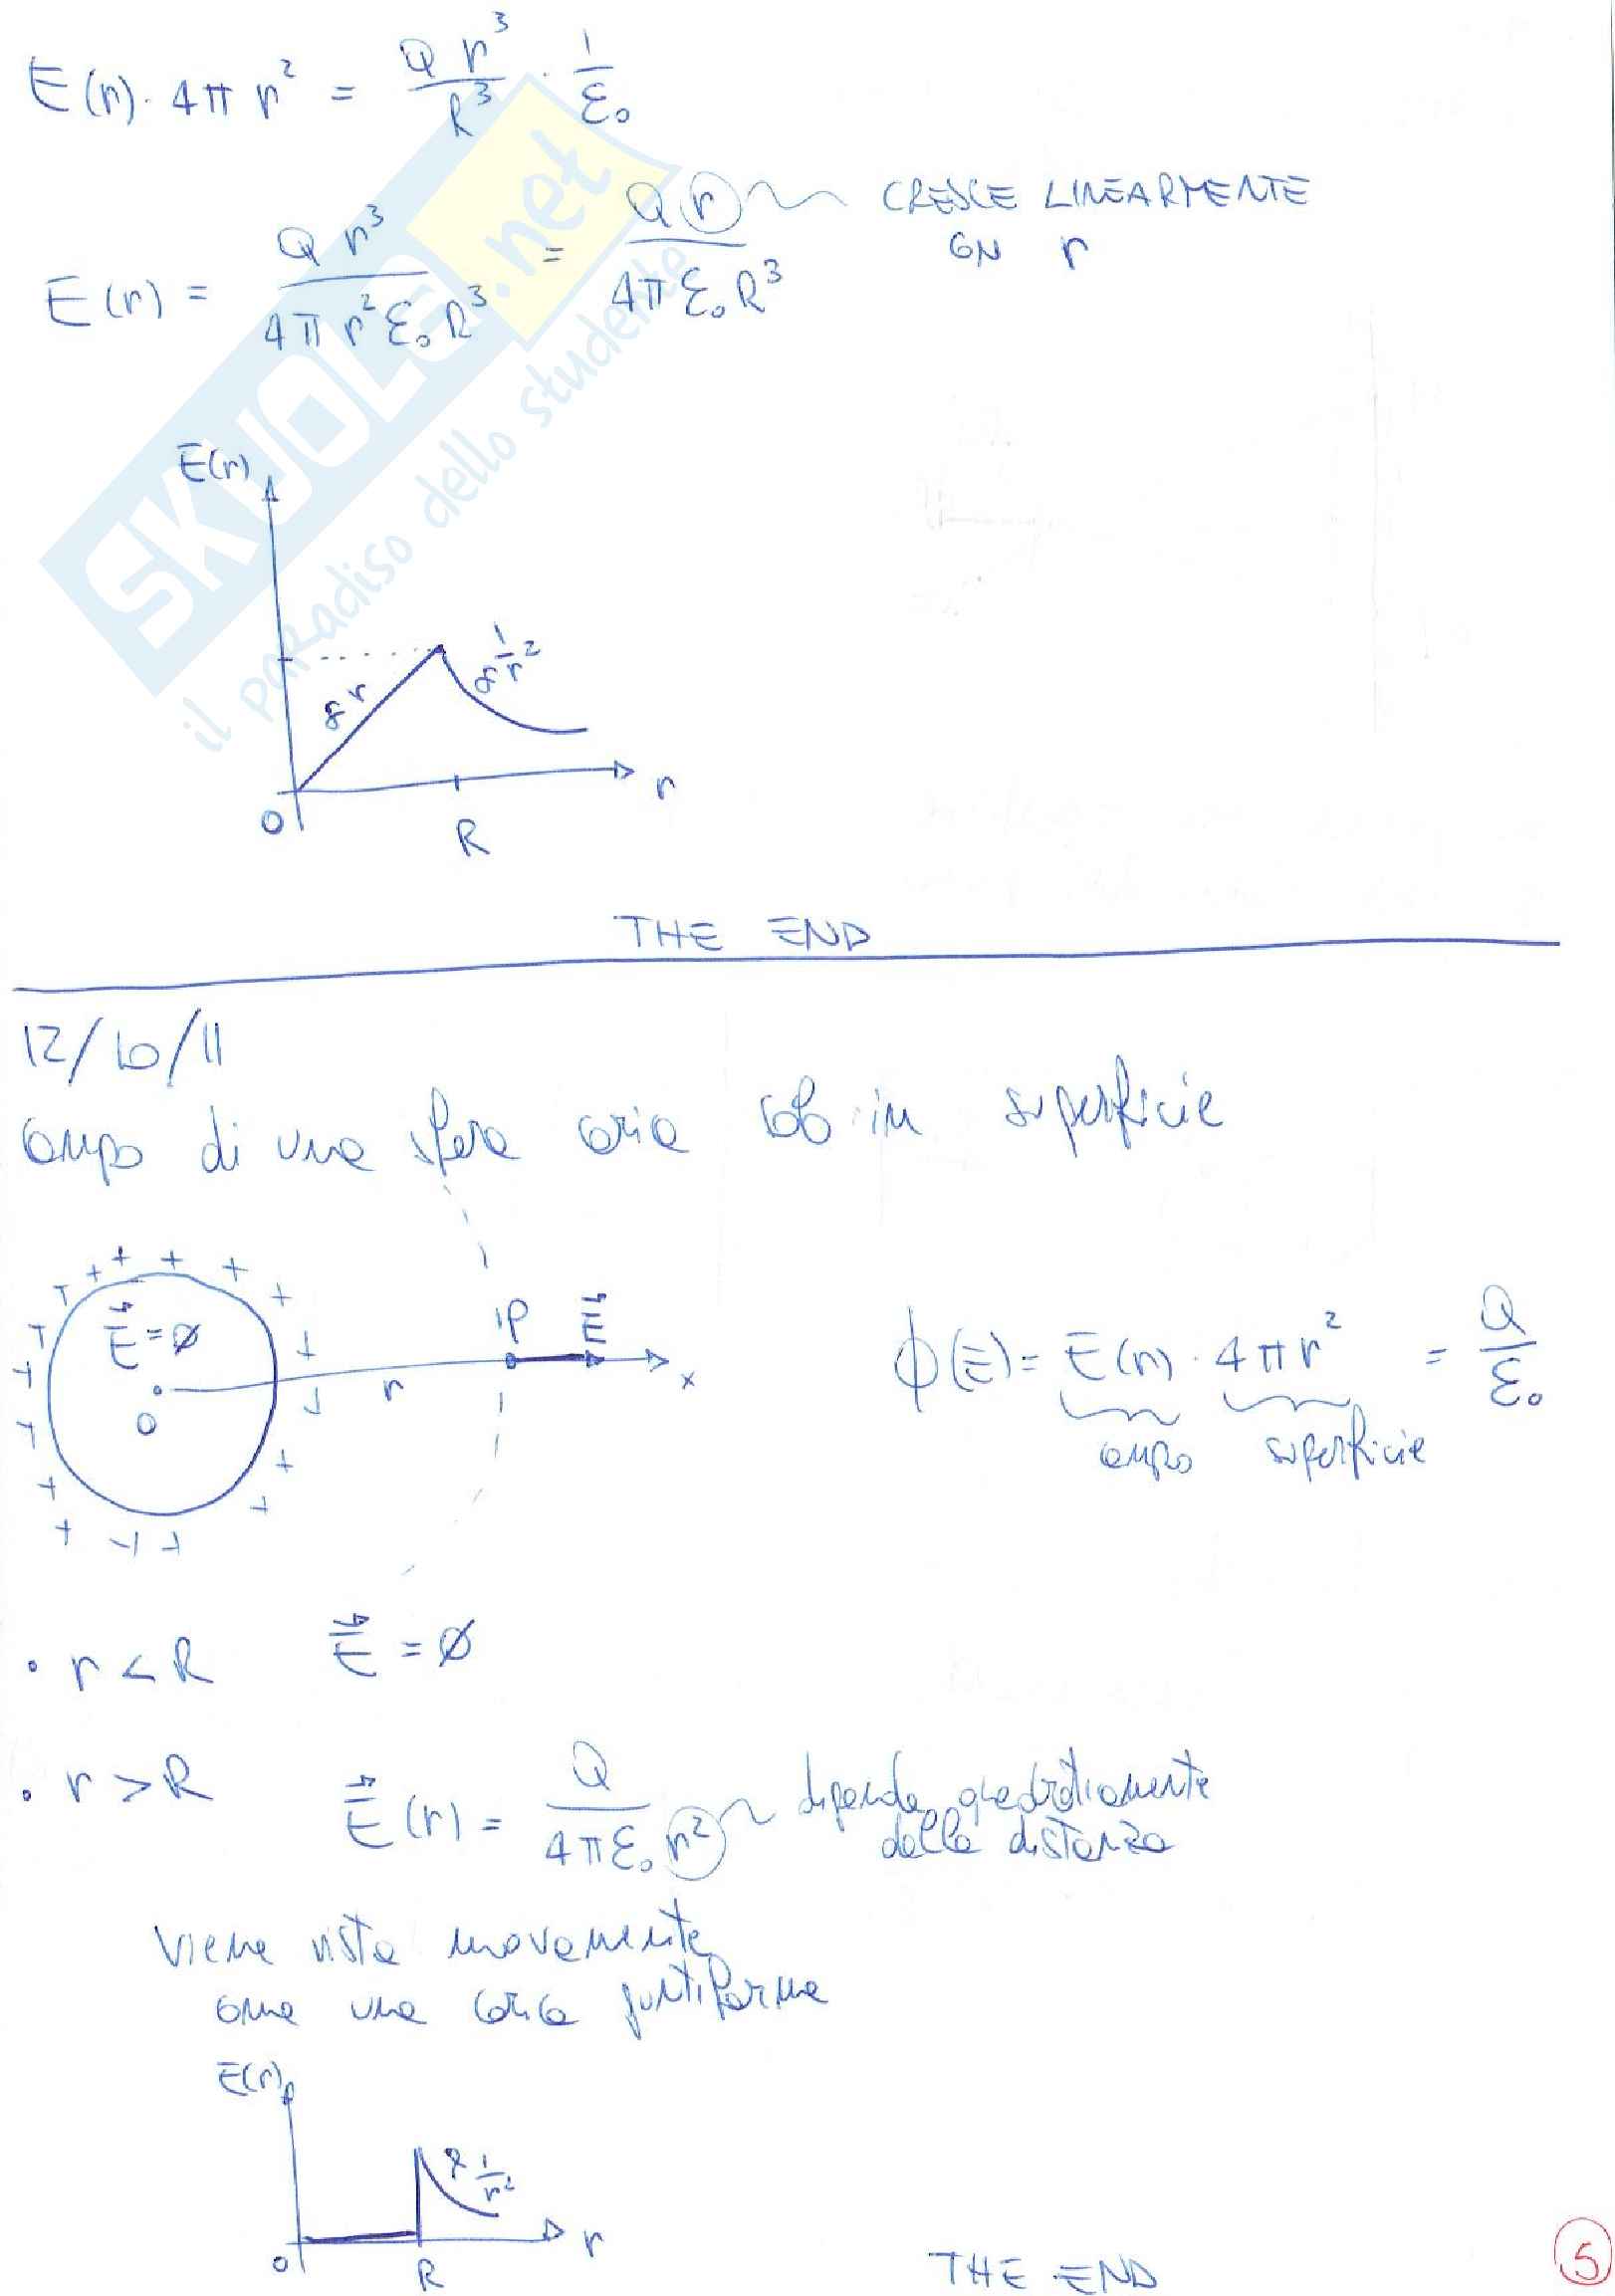 E(r) · 4π r² = Q r³ / R³ · 1 / ε₀
E(r) = Q r³ / 4π r² ε₀ R³ = Q r / 4π ε₀ R³ CRESCE LINEARMENTE
CON r
SKUOLA.net
il paradiso dello studente
E(r)
∝ r
∝ 1/r²
0
R
r
THE END
12/10/11
campo di una sfera carica solo in superficie
E⃗ = ∅
O
r
P
E⃗
x
ϕ(E⃗) = E(r) · 4π r² = Q / ε₀
campo superficie
• r < R E⃗ = ∅
• r > R E⃗(r) = Q / 4π ε₀ r² dipende quadraticamente
dalla distanza
viene vista nuovamente
come una carica puntiforme
E(r)
∝ 1/r²
0
R
r
THE END
5